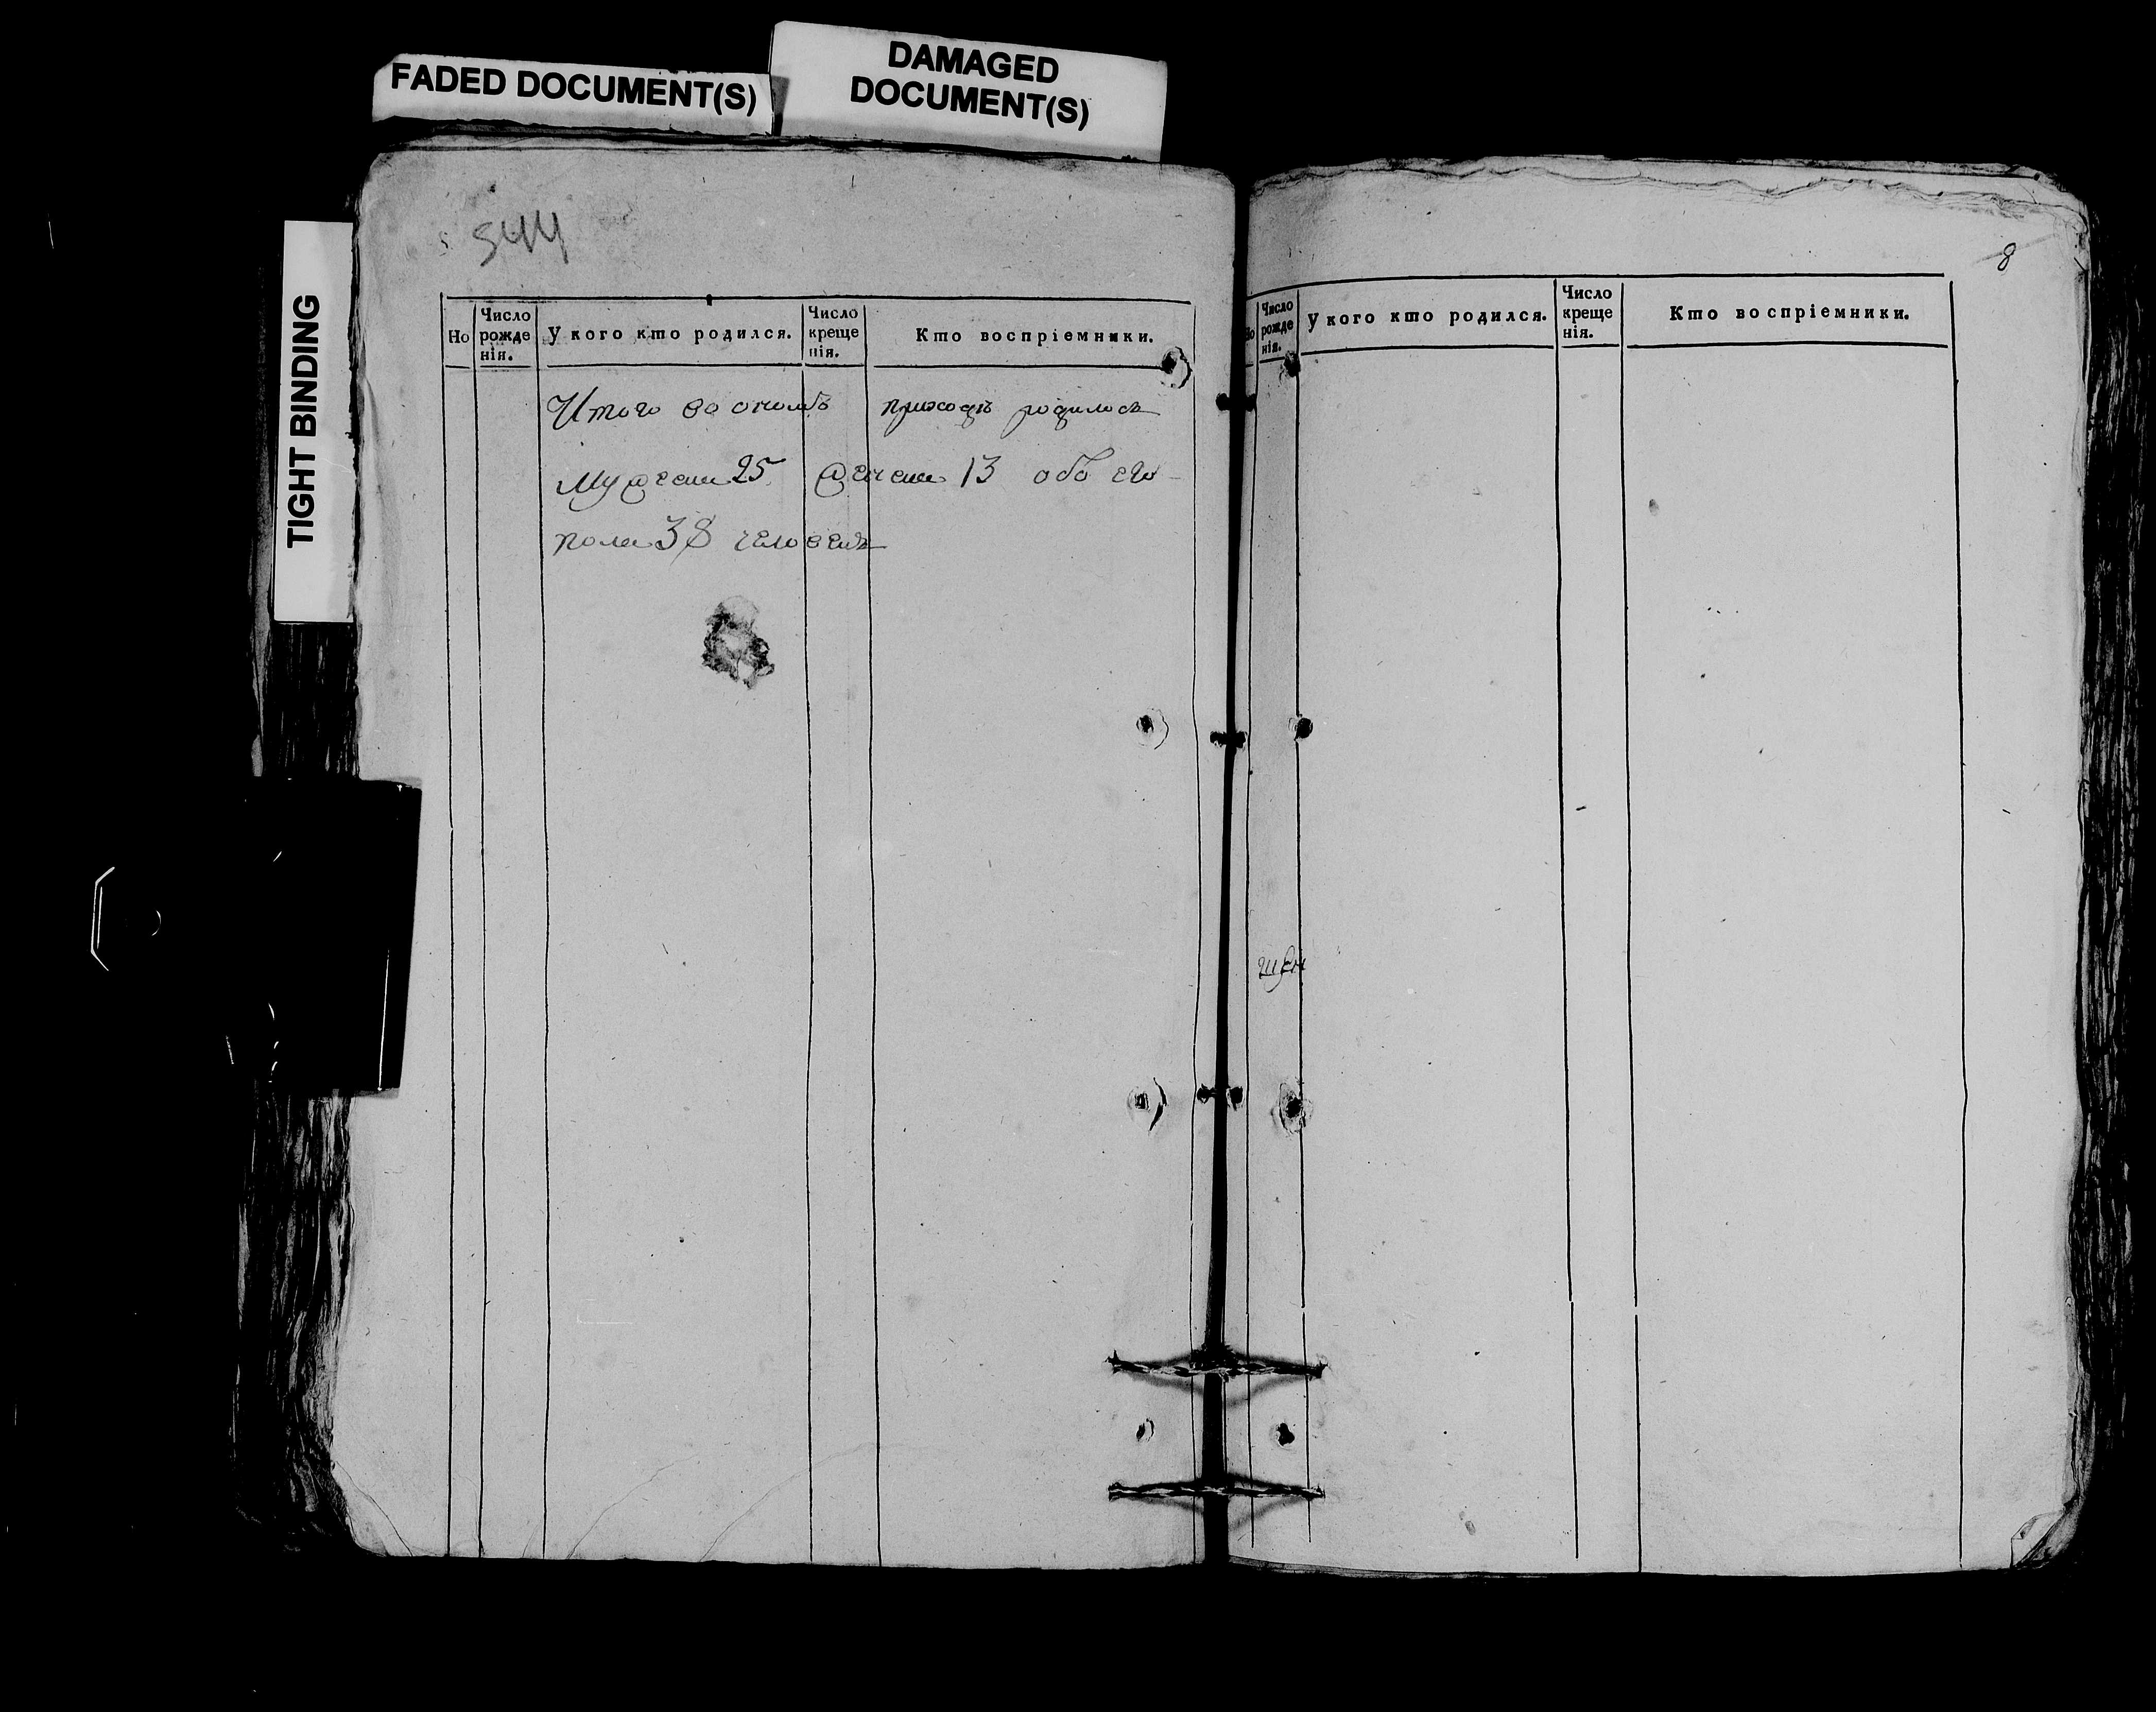 FADED DOCUMENT(S)
DAMAGED
DOCUMENT(S)
TIGHT BINDING
544
Но
Число
рожде
нія.
У кого кто родился.
Число
креще
нія.
Кто воспріемники.
Итого во ономъ приходѣ родилось
Мужеска 25 женска 13 обоего
пола 38 человекъ
8
Но
Число
рожде
нія.
У кого кто родился.
Число
креще
нія.
Кто воспріемники.